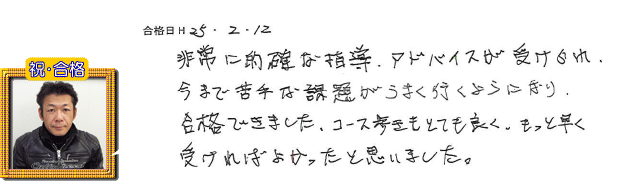 合格日H25.2.12
祝・合格
非常に的確な指導、アドバイスが受けられ、
今まで苦手な課題がうまく行くようになり、
合格できました、コース歩きもとても良く、もっと早く
受ければよかったと思いました。